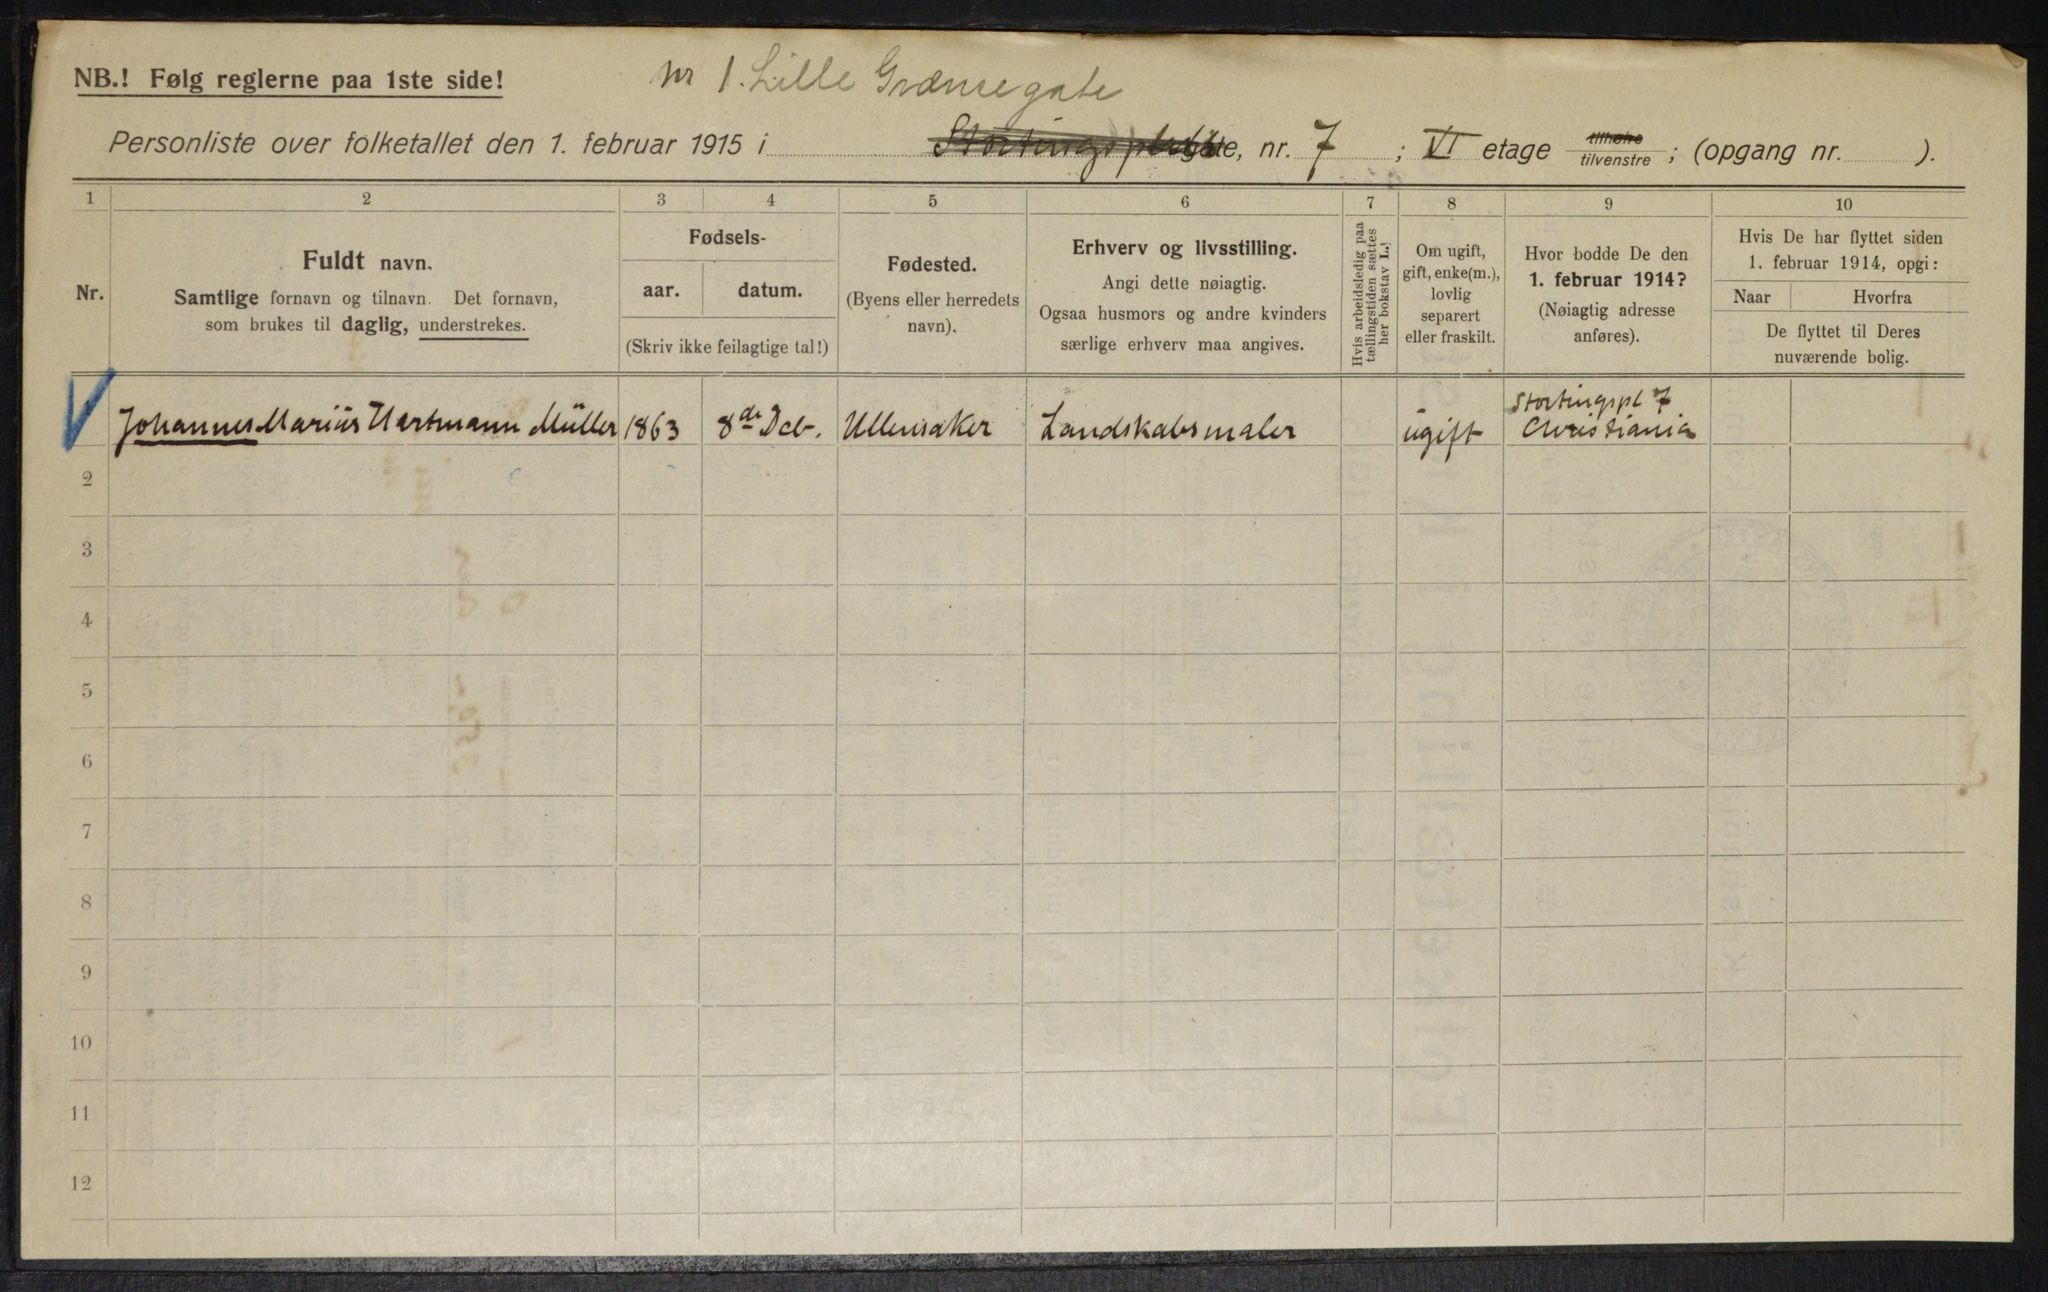 NB.! Følg reglerne paa 1ste side!
nr 1. Lille Grænsegate
Personliste over folketallet den 1. februar 1915 i Stortingsplads gate, nr. 7 ; VI etage tilhøire tilvenstre ; (opgang nr. ).
1 2 3 4 5 6 7 8 9 10
Nr.
Fuldt navn.
Samtlige fornavn og tilnavn. Det fornavn,
som brukes til daglig, understrekes.
Fødsels-
aar. datum.
(Skriv ikke feilagtige tal!)
Fødested.
(Byens eller herredets
navn).
Erhverv og livsstilling.
Angi dette nøiagtig.
Ogsaa husmors og andre kvinders
særlige erhverv maa angives.
Hvis arbeidsledig paa
tællingstiden sættes
her bokstav L.!
Om ugift,
gift, enke(m.),
lovlig
separert
eller fraskilt.
Hvor bodde De den
1. februar 1914?
(Nøiagtig adresse
anføres).
Hvis De har flyttet siden
1. februar 1914, opgi:
Naar Hvorfra
De flyttet til Deres
nuværende bolig.
Johannes Marius Hartmann Müller 1863 8de Dcb. Ullensaker Landskabsmaler ugift Stortingspl 7
Christiania
2
3
4
5
6
7
8
9
10
11
12